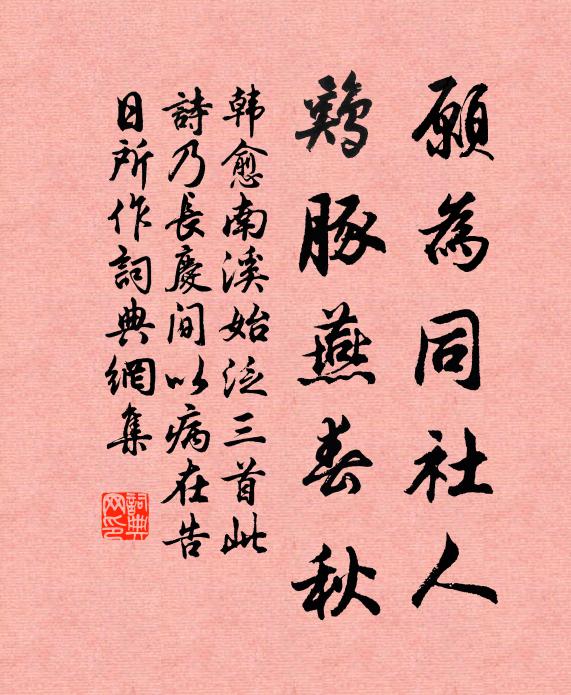 願為同社人
鷄豚燕春秋
韩愈南溪始泛三首此
詩乃長慶间以病在告
日所作詞典網集
詞典
网印